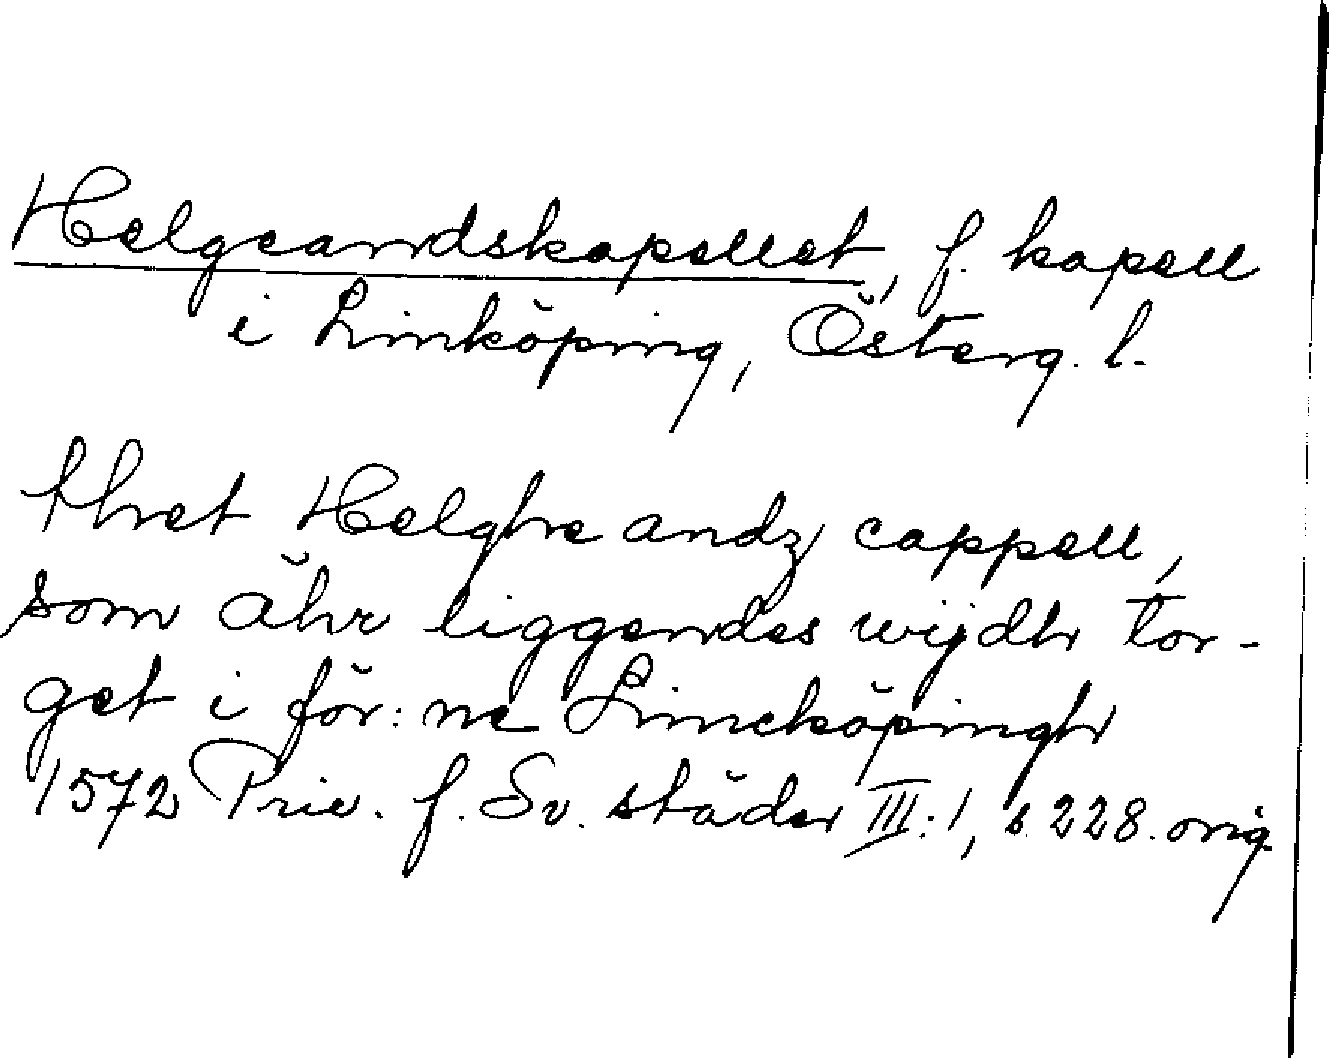 Helgeandskapellet, f. kapell
i Linköping, Österg. l.
thet Helghe andz cappell,
som ähr liggendes wijdh tor-
get i för:ne Lincköpingh
1572 Priv. f. Sv. städer III:1, s. 228. orig.